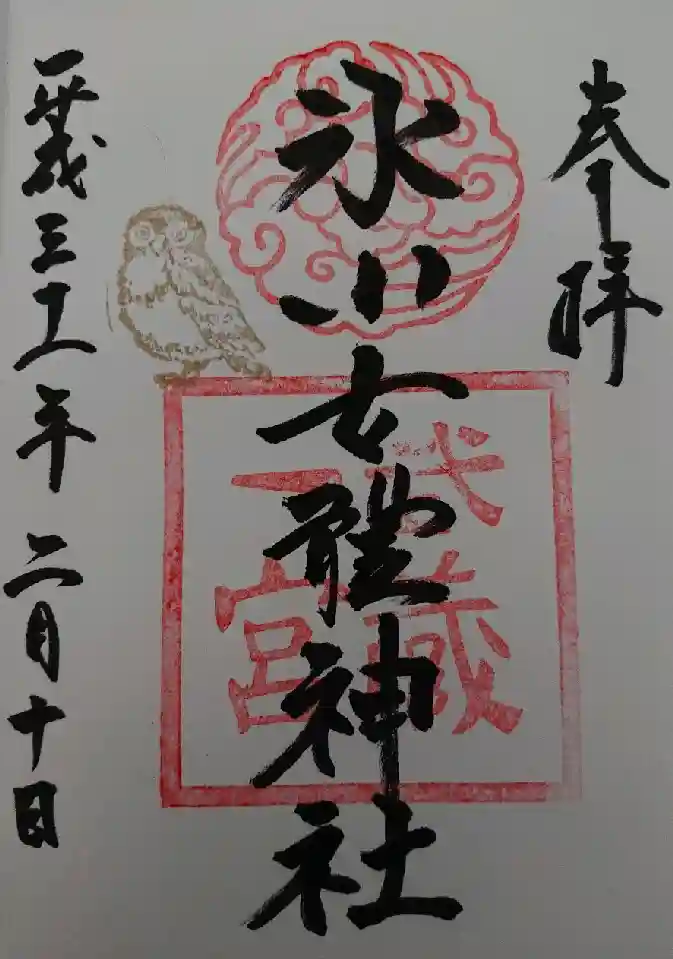 奉拝
氷川女體神社
武蔵
一宮
平成三十一年 二月十日